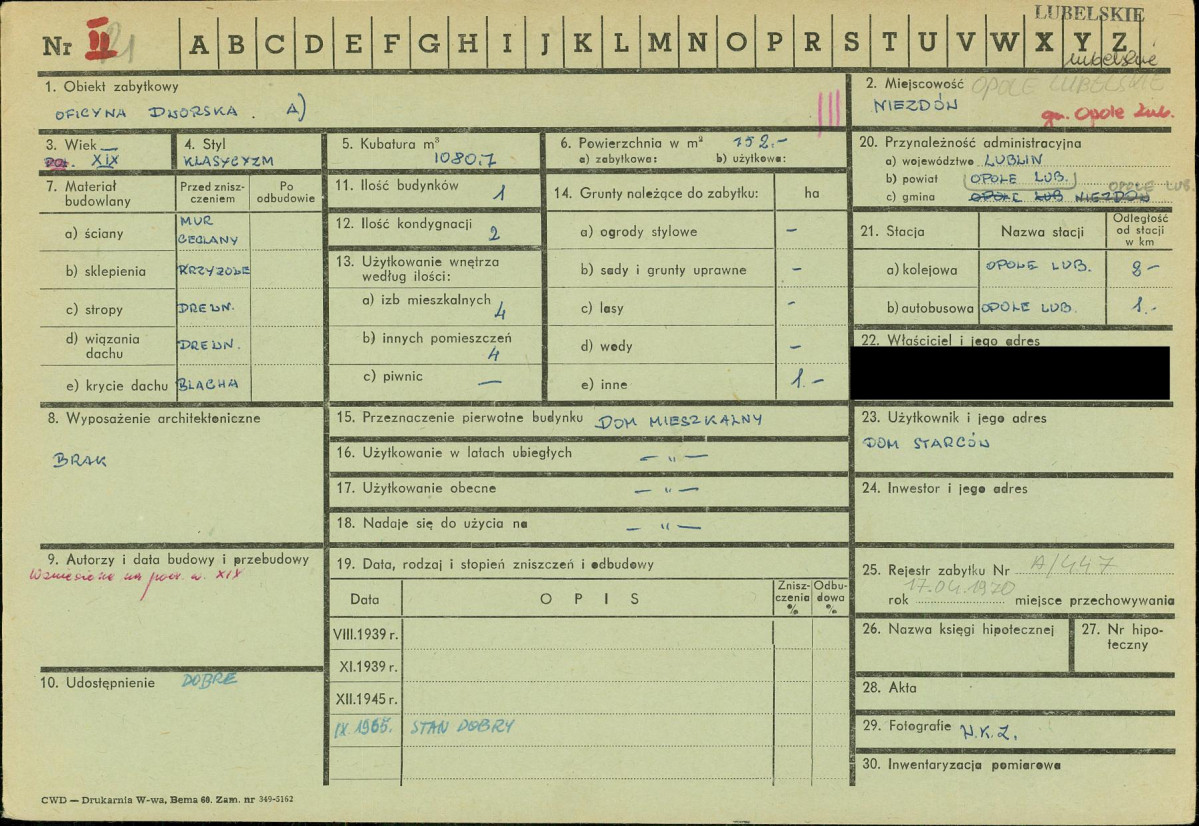 LUBELSKIE
Nr II 21 A B C D E F G H I J K L M N O P R S T U V W X Y Z
lubelskie
1. Obiekt zabytkowy
OFICYNA DWORSKA . A)
2. Miejscowość OPOLE LUBELSKIE
NIEZDÓW
gm. Opole Lub.
3. Wiek
POŁ. XIX
4. Styl
KLASYCYZM
5. Kubatura m³
1080.7
6. Powierzchnia w m² 152.-
a) zabytkowa: b) użytkowa:
20. Przynależność administracyjna
a) województwo LUBLIN
b) powiat OPOLE LUB.
c) gmina OPOLE LUB NIEZDÓW OPOLE LUB.
7. Materiał budowlany
Przed zniszczeniem
Po odbudowie
a) ściany MUR CEGLANY
b) sklepienia KRZYŻOWE
c) stropy DREWN.
d) wiązania dachu DREWN.
e) krycie dachu BLACHA
11. Ilość budynków 1
12. Ilość kondygnacji 2
13. Użytkowanie wnętrza według ilości:
a) izb mieszkalnych 4
b) innych pomieszczeń 4
c) piwnic —
14. Grunty należące do zabytku: ha
a) ogrody stylowe –
b) sady i grunty uprawne –
c) lasy -
d) wody –
e) inne 1.-
21. Stacja Nazwa stacji Odległość od stacji w km
a) kolejowa OPOLE LUB. 8-
b) autobusowa OPOLE LUB. 1.-
22. Właściciel i jego adres
8. Wyposażenie architektoniczne
BRAK
15. Przeznaczenie pierwotne budynku DOM MIESZKALNY
16. Użytkowanie w latach ubiegłych — „ —
17. Użytkowanie obecne — „ —
18. Nadaje się do użycia na — „ —
23. Użytkownik i jego adres
DOM STARCÓW
24. Inwestor i jego adres
9. Autorzy i data budowy i przebudowy
Wzniesiona na pocz. w. XIX
10. Udostępnienie DOBRE
19. Data, rodzaj i stopień zniszczeń i odbudowy
Data OPIS Zniszczenia % Odbudowa %
VIII.1939 r.
XI.1939 r.
XII.1945 r.
IX.1965. STAN DOBRY
25. Rejestr zabytku Nr A/447
rok 17.04.1970 miejsce przechowywania
26. Nazwa księgi hipotecznej
27. Nr hipoteczny
28. Akta
29. Fotografie W.K.Z.
30. Inwentaryzacja pomiarowa
CWD — Drukarnia W-wa, Bema 60. Zam. nr 349-5162